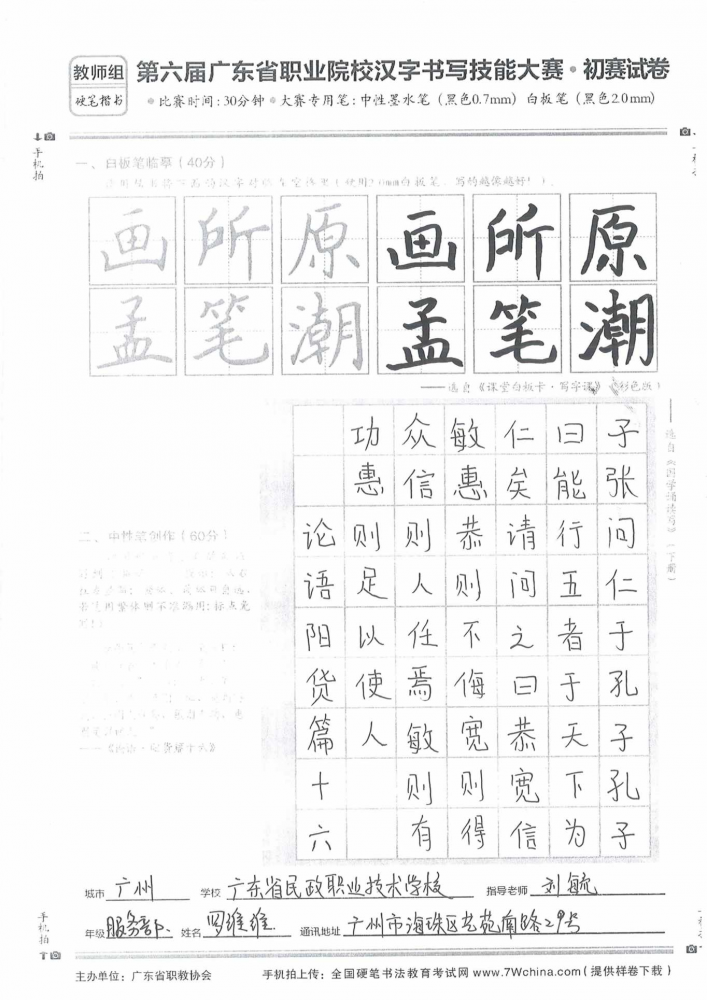 教师组
硬笔楷书
第六届广东省职业院校汉字书写技能大赛·初赛试卷
●比赛时间:30分钟●大赛专用笔:中性墨水笔(黑色0.7mm) 白板笔(黑色2.0mm)
手机拍
一、白板笔临摹(40分)
画所原画所原
孟笔潮孟笔潮
——选自《课堂白板卡·写字课》(彩色版)
二、中性笔创作(60分)
子张问仁于孔子孔子
曰能行五者于天下为
仁矣请问之曰恭宽信
敏惠恭则不侮宽则得
众信则人任焉敏则有
功惠则足以使人
论语阳货篇十六
——选自《国学诵读写》(下册)
城市 广州 学校 广东省民政职业技术学校 指导老师 刘毓
年级 服务部 姓名 罗维维 通讯地址 广州市海珠区艺苑南路29号
手机拍
主办单位:广东省职教协会 手机拍上传:全国硬笔书法教育考试网 www.7Wchina.com(提供样卷下载)